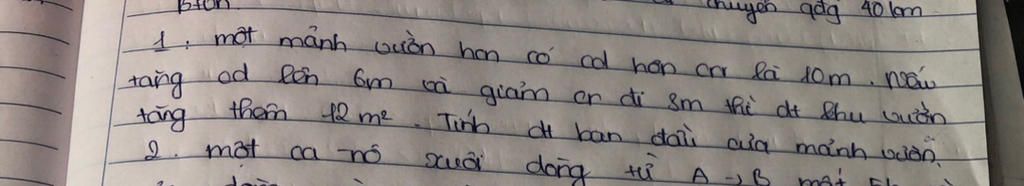 Btơn chuyển gđg 40km
1. một mảnh vườn hcn có cd hơn cr là 10m. Nếu
tăng cd lên 6m và giảm cr đi 3m thì dt khu vườn
tăng thêm 12 m². Tính dt ban đầu của mảnh vườn.
2. một ca-nô xuôi dòng từ A → B mất